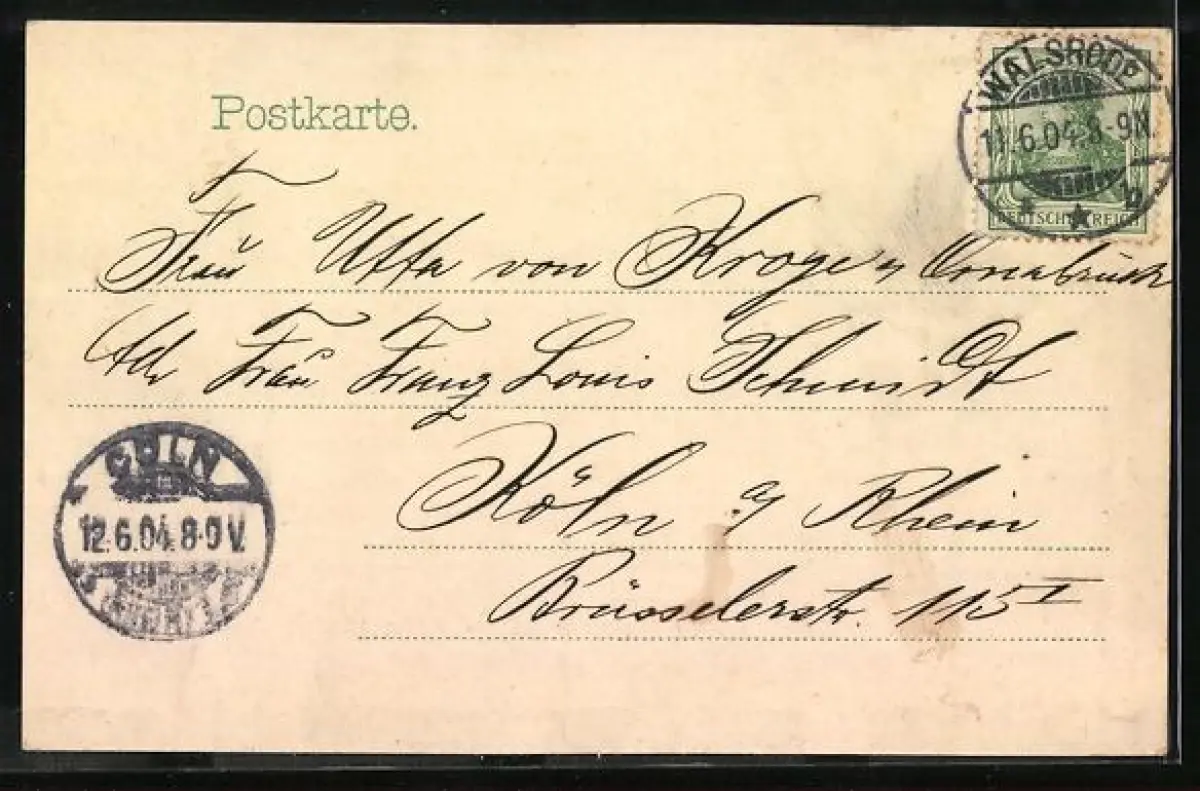 Postkarte.
WALSRODE
11.6.04.8-9N.
* ★ b
DEUTSCHES REICH
Frau Utta von Kroge a/ Osnabrück
Adr Frau Franz Louis Schmidt
Köln a/ Rhein
Brüsselerstr. 115 I
CÖLN
12.6.04.8-9V.